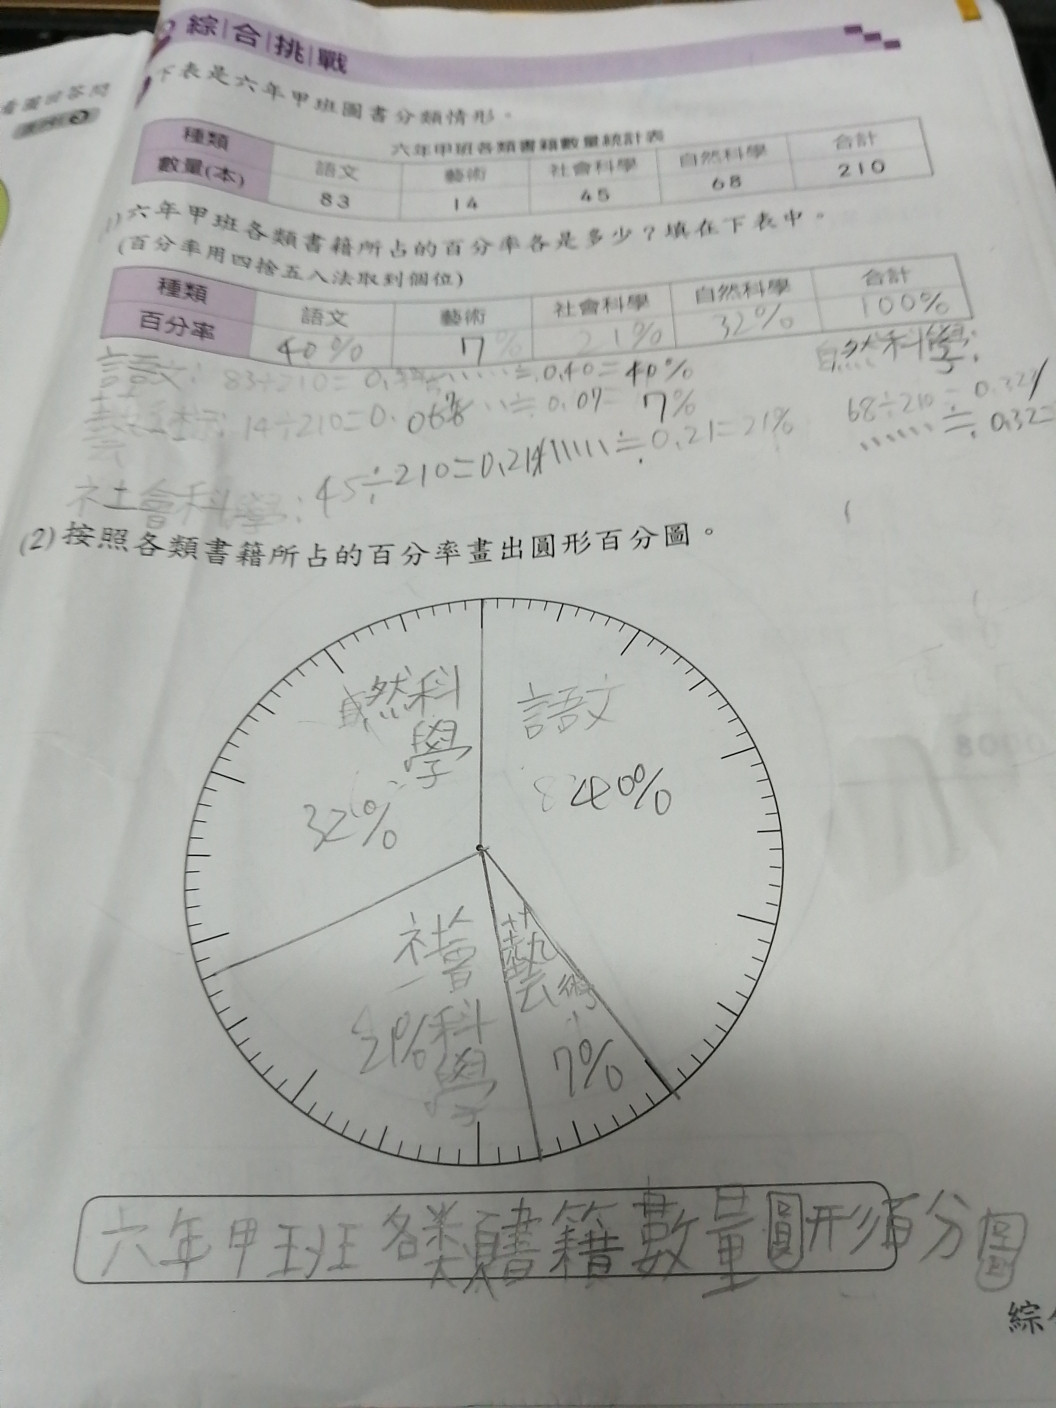 看圖回答問
綜合挑戰
下表是六年甲班圖書分類情形。
六年甲班各類書籍數量統計表
種類 語文 藝術 社會科學 自然科學 合計
數量(本) 83 14 45 68 210
(1)六年甲班各類書籍所占的百分率各是多少？填在下表中。
(百分率用四捨五入法取到個位)
種類 語文 藝術 社會科學 自然科學 合計
百分率 40% 7% 21% 32% 100%
語文：83÷210=0.⋯⋯≒0.40=40%
自然科學：
藝術：14÷210=0.06⋯≒0.07=7%
68÷210=0.32
⋯⋯≒0.32=
社會科學：45÷210=0.214⋯⋯≒0.21=21%
(2)按照各類書籍所占的百分率畫出圓形百分圖。
自然科學
32%
語文
40%
社會科學
21%
藝術
7%
六年甲班各類書籍數量圓形百分圖
綜